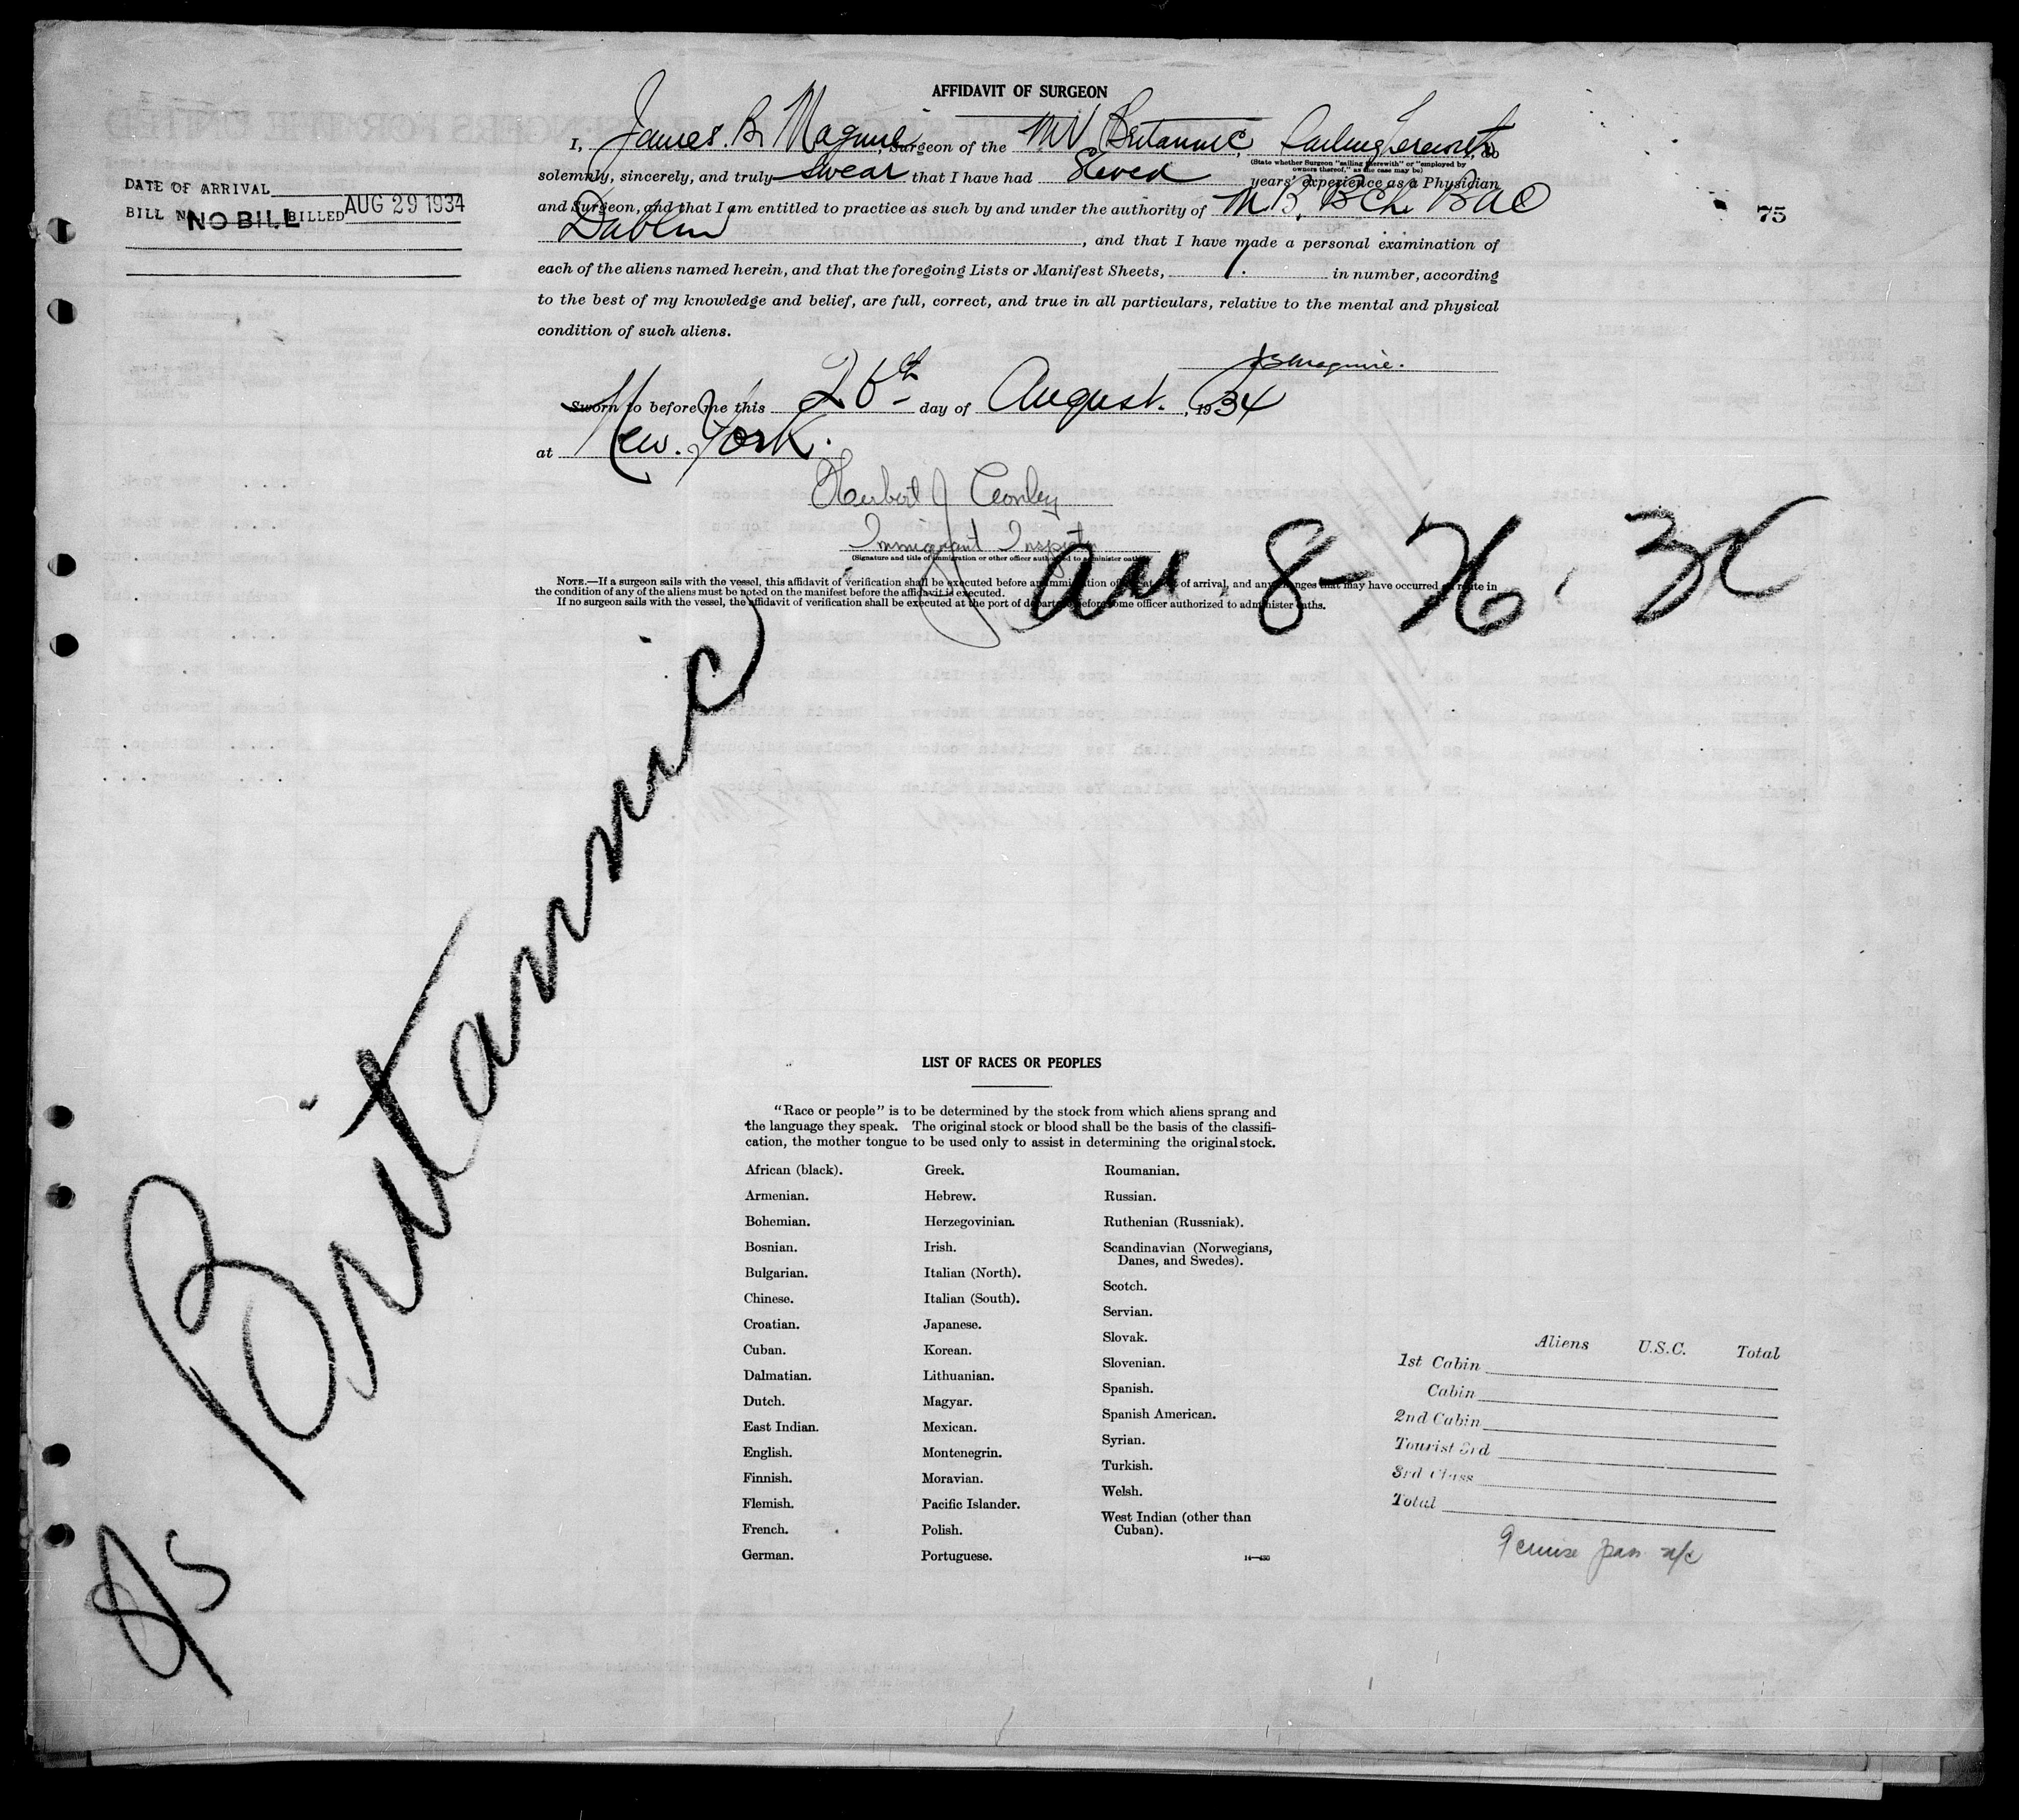 AFFIDAVIT OF SURGEON
I, James. B. Maguire, Surgeon of the MV Britannic, Sailing therewith, do
(State whether Surgeon "sailing therewith" or "employed by
owners thereof," as the case may be)
solemnly, sincerely, and truly swear that I have had Eleven years' experience as a Physician
and Surgeon, and that I am entitled to practice as such by and under the authority of M.B. BCh. BAO
Dublin, and that I have made a personal examination of
each of the aliens named herein, and that the foregoing Lists or Manifest Sheets, 1. in number, according
to the best of my knowledge and belief, are full, correct, and true in all particulars, relative to the mental and physical
condition of such aliens.
JBMaguire.
Sworn to before me this 26th day of August., 1934
at New. York.
Herbert J Conley
Immigrant Inspector
(Signature and title of immigration or other officer authorized to administer oaths)
NOTE.—If a surgeon sails with the vessel, this affidavit of verification shall be executed before an immigration officer at port of arrival, and any changes that may have occurred en route in
the condition of any of the aliens must be noted on the manifest before the affidavit is executed.
If no surgeon sails with the vessel, the affidavit of verification shall be executed at the port of departure before some officer authorized to administer oaths.
DATE OF ARRIVAL
BILL No. NO BILL BILLED AUG 29 1934
75
8-26.34
Britannic
LIST OF RACES OR PEOPLES
"Race or people" is to be determined by the stock from which aliens sprang and
the language they speak. The original stock or blood shall be the basis of the classifi-
cation, the mother tongue to be used only to assist in determining the original stock.
African (black).
Armenian.
Bohemian.
Bosnian.
Bulgarian.
Chinese.
Croatian.
Cuban.
Dalmatian.
Dutch.
East Indian.
English.
Finnish.
Flemish.
French.
German.
Greek.
Hebrew.
Herzegovinian.
Irish.
Italian (North).
Italian (South).
Japanese.
Korean.
Lithuanian.
Magyar.
Mexican.
Montenegrin.
Moravian.
Pacific Islander.
Polish.
Portuguese.
Roumanian.
Russian.
Ruthenian (Russniak).
Scandinavian (Norwegians,
Danes, and Swedes).
Scotch.
Servian.
Slovak.
Slovenian.
Spanish.
Spanish American.
Syrian.
Turkish.
Welsh.
West Indian (other than
Cuban).
14—430
Aliens U.S.C. Total
1st Cabin
Cabin
2nd Cabin
Tourist 3rd
3rd Class
Total
9 cruise pass n/c